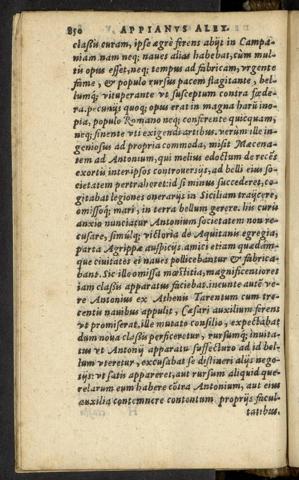 850 APPIANVS ALEX.
classiũ curam, ipse agrè ferens abijt in Campa-
niam nam neq; naues alias habebat, cùm mul-
tũ opus esset, neq; tempus ad fabricam, vrgente
fame, & populo rursus pacem flagitante, bel-
lumq; vituperante vt susceptum contra fœde-
ra. pecunijs quoq; opus erat in magna harũ ino-
pia, populo Romano neq; conferente quicquam,
neq; sinente vti exigendi artibus. verùm ille in-
geniosus ad propria commoda, misit Mæcena-
tem ad Antonium, qui melius edoctum de recẽs
exortis inter ipsos controuersijs, ad belli eius so-
cietatem pertraheret: id si minus succederet, co-
gitabat legiones onerarijs in Siciliam traijcere,
omissoq; mari, in terra bellum gerere. his curis
anxio nunciatur Antonium societatem non re-
cusare, simulq; victoria de Aquitanis egregia,
parta Agrippæ auspicijs. amici etiam quædam-
que ciuitates ei naues pollicebantur & fabrica-
bant. Sic ille omissa mœstitia, magnificentiores
iam classiũ apparatus faciebat. ineunte autẽ ve-
re Antonius ex Athenis Tarentum cum tre-
centis nauibus appulit, Cæsari auxilium ferens
vt promiserat. ille mutato consilio, expectabat
dum noua classis perficeretur, rursumq; inuita-
tus vt Antonij apparatu suffecturo ad id bel-
lum vteretur, excusabat se distineri alijs nego-
tijs: vt satis appareret, aut rursum aliquid que-
relarum eum habere cõtra Antonium, aut eius
auxilia contemnere contentum proprijs facul-
tatibus.